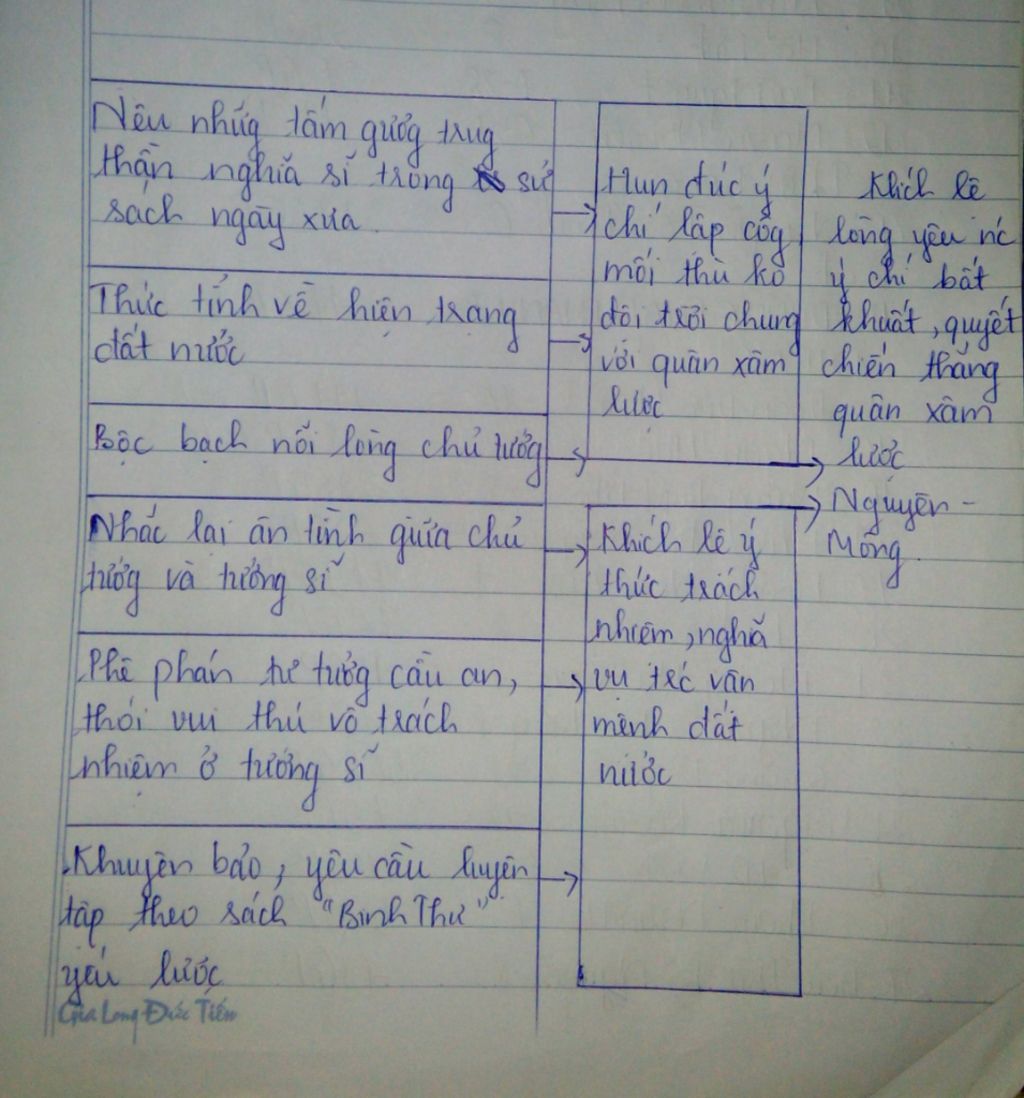 Nêu nhữg tấm gươg trug
thần nghĩa sĩ trong sử
sách ngày xưa.
Thức tỉnh về hiện trạng
đất nước
Bộc bạch nỗi lòng chủ tướg
Nhắc lại ân tình giữa chủ
tướg và tướng sĩ
Phê phán tư tưởg cầu an,
thói vui thú vô trách
nhiệm ở tướng sĩ
Khuyên bảo, yêu cầu luyện
tập theo sách "Binh Thư"
yếu lược
Hun đúc ý
chí lập côg
mối thù ko
đội trời chung
với quân xâm
lược
Khích lệ ý
thức trách
nhiệm, nghĩa
vụ trc vận
mệnh đất
nước
Khích lệ
lòng yêu nc
ý chí bất
khuất, quyết
chiến thắng
quân xâm
lược
Nguyên -
Mông.
Gia Long Đức Tiến